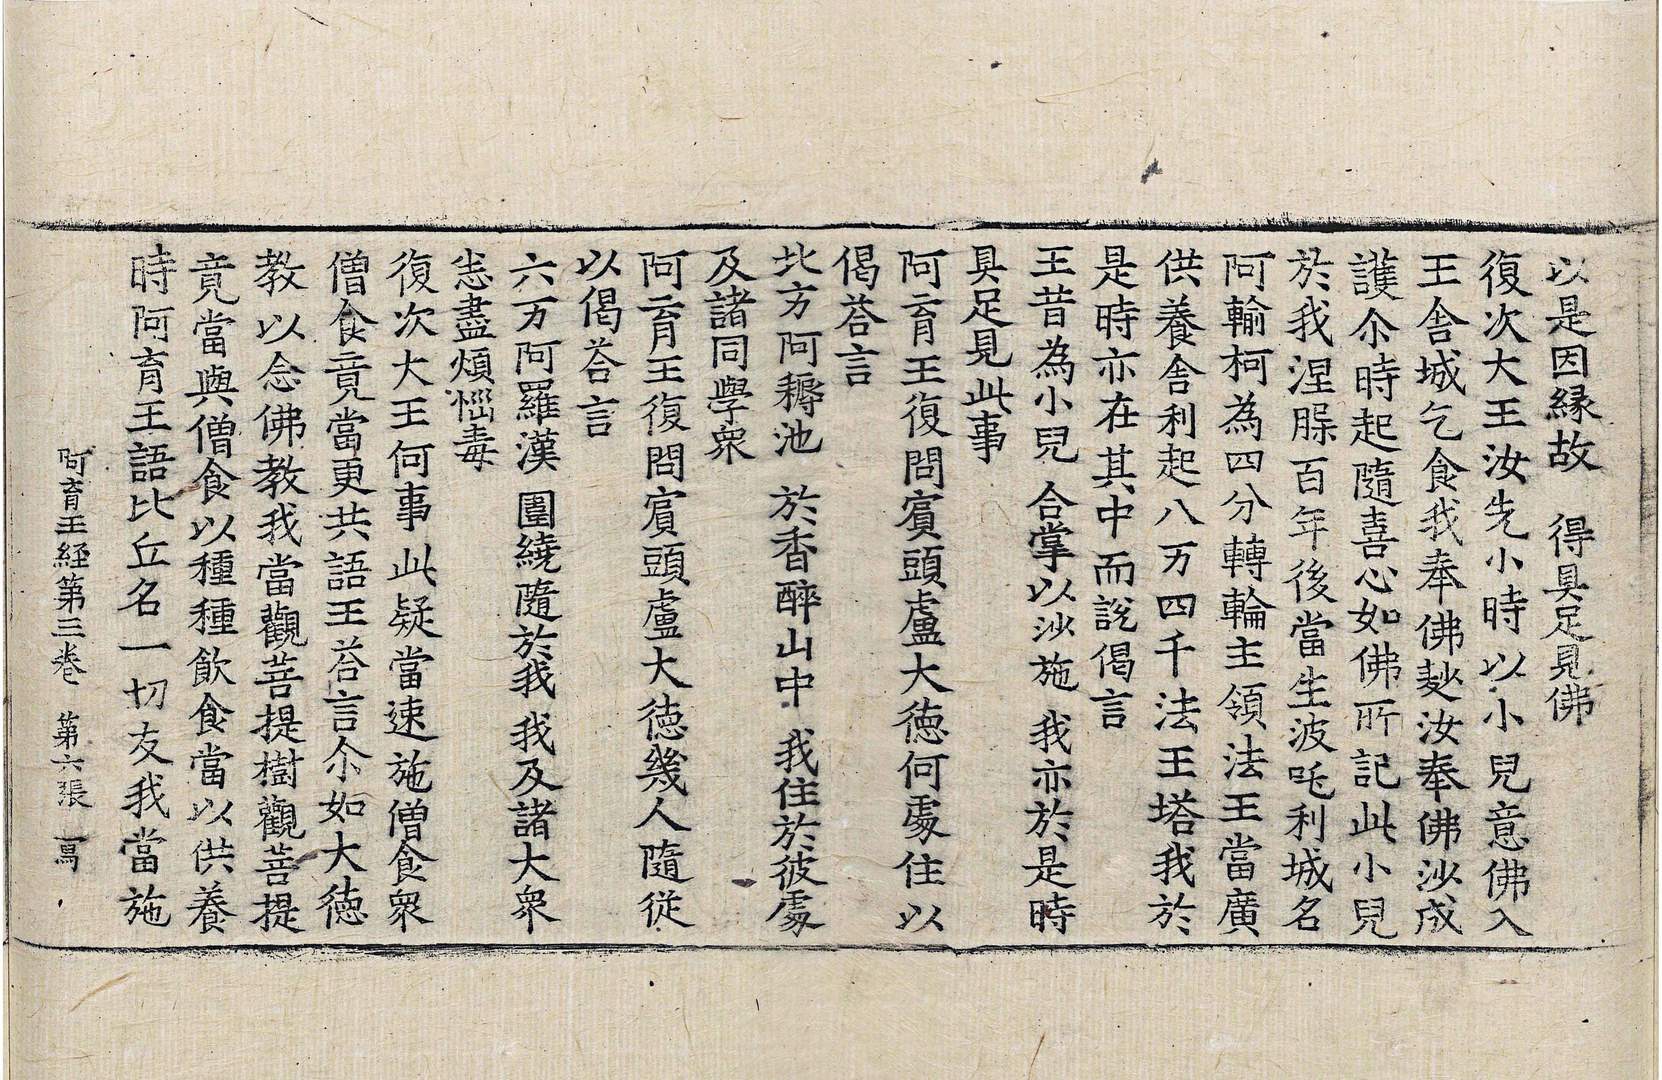 以是因縁故　得具足見佛
復次大王汝先小時以小兒意佛入
王舍城乞食我奉佛麨汝奉佛沙成
護尒時起隨喜心如佛所記此小兒
於我涅脲百年後當生波吒利城名
阿輸柯為四分轉輪主領法王當廣
供養舍利起八万四千法王塔我於
是時亦在其中而說偈言
王昔為小兒　合掌以沙施　我亦於是時
具足見此事
阿育王復問賔頭盧大徳何處住以
偈荅言
北方阿耨池　於香醉山中　我住於彼處
及諸同學衆
阿育王復問賔頭盧大徳幾人隨従
以偈荅言
六万阿羅漢　圍繞隨於我　我及諸大衆
恙盡煩惱毒
復次大王何事此疑當速施僧食衆
僧食竟當更共語王荅言尒如大徳
教以念佛教我當觀菩提樹觀菩提
竟當與僧食以種種飲食當以供養
時阿育王語比丘名一切友我當施
阿育王経第三卷　第六張　萬